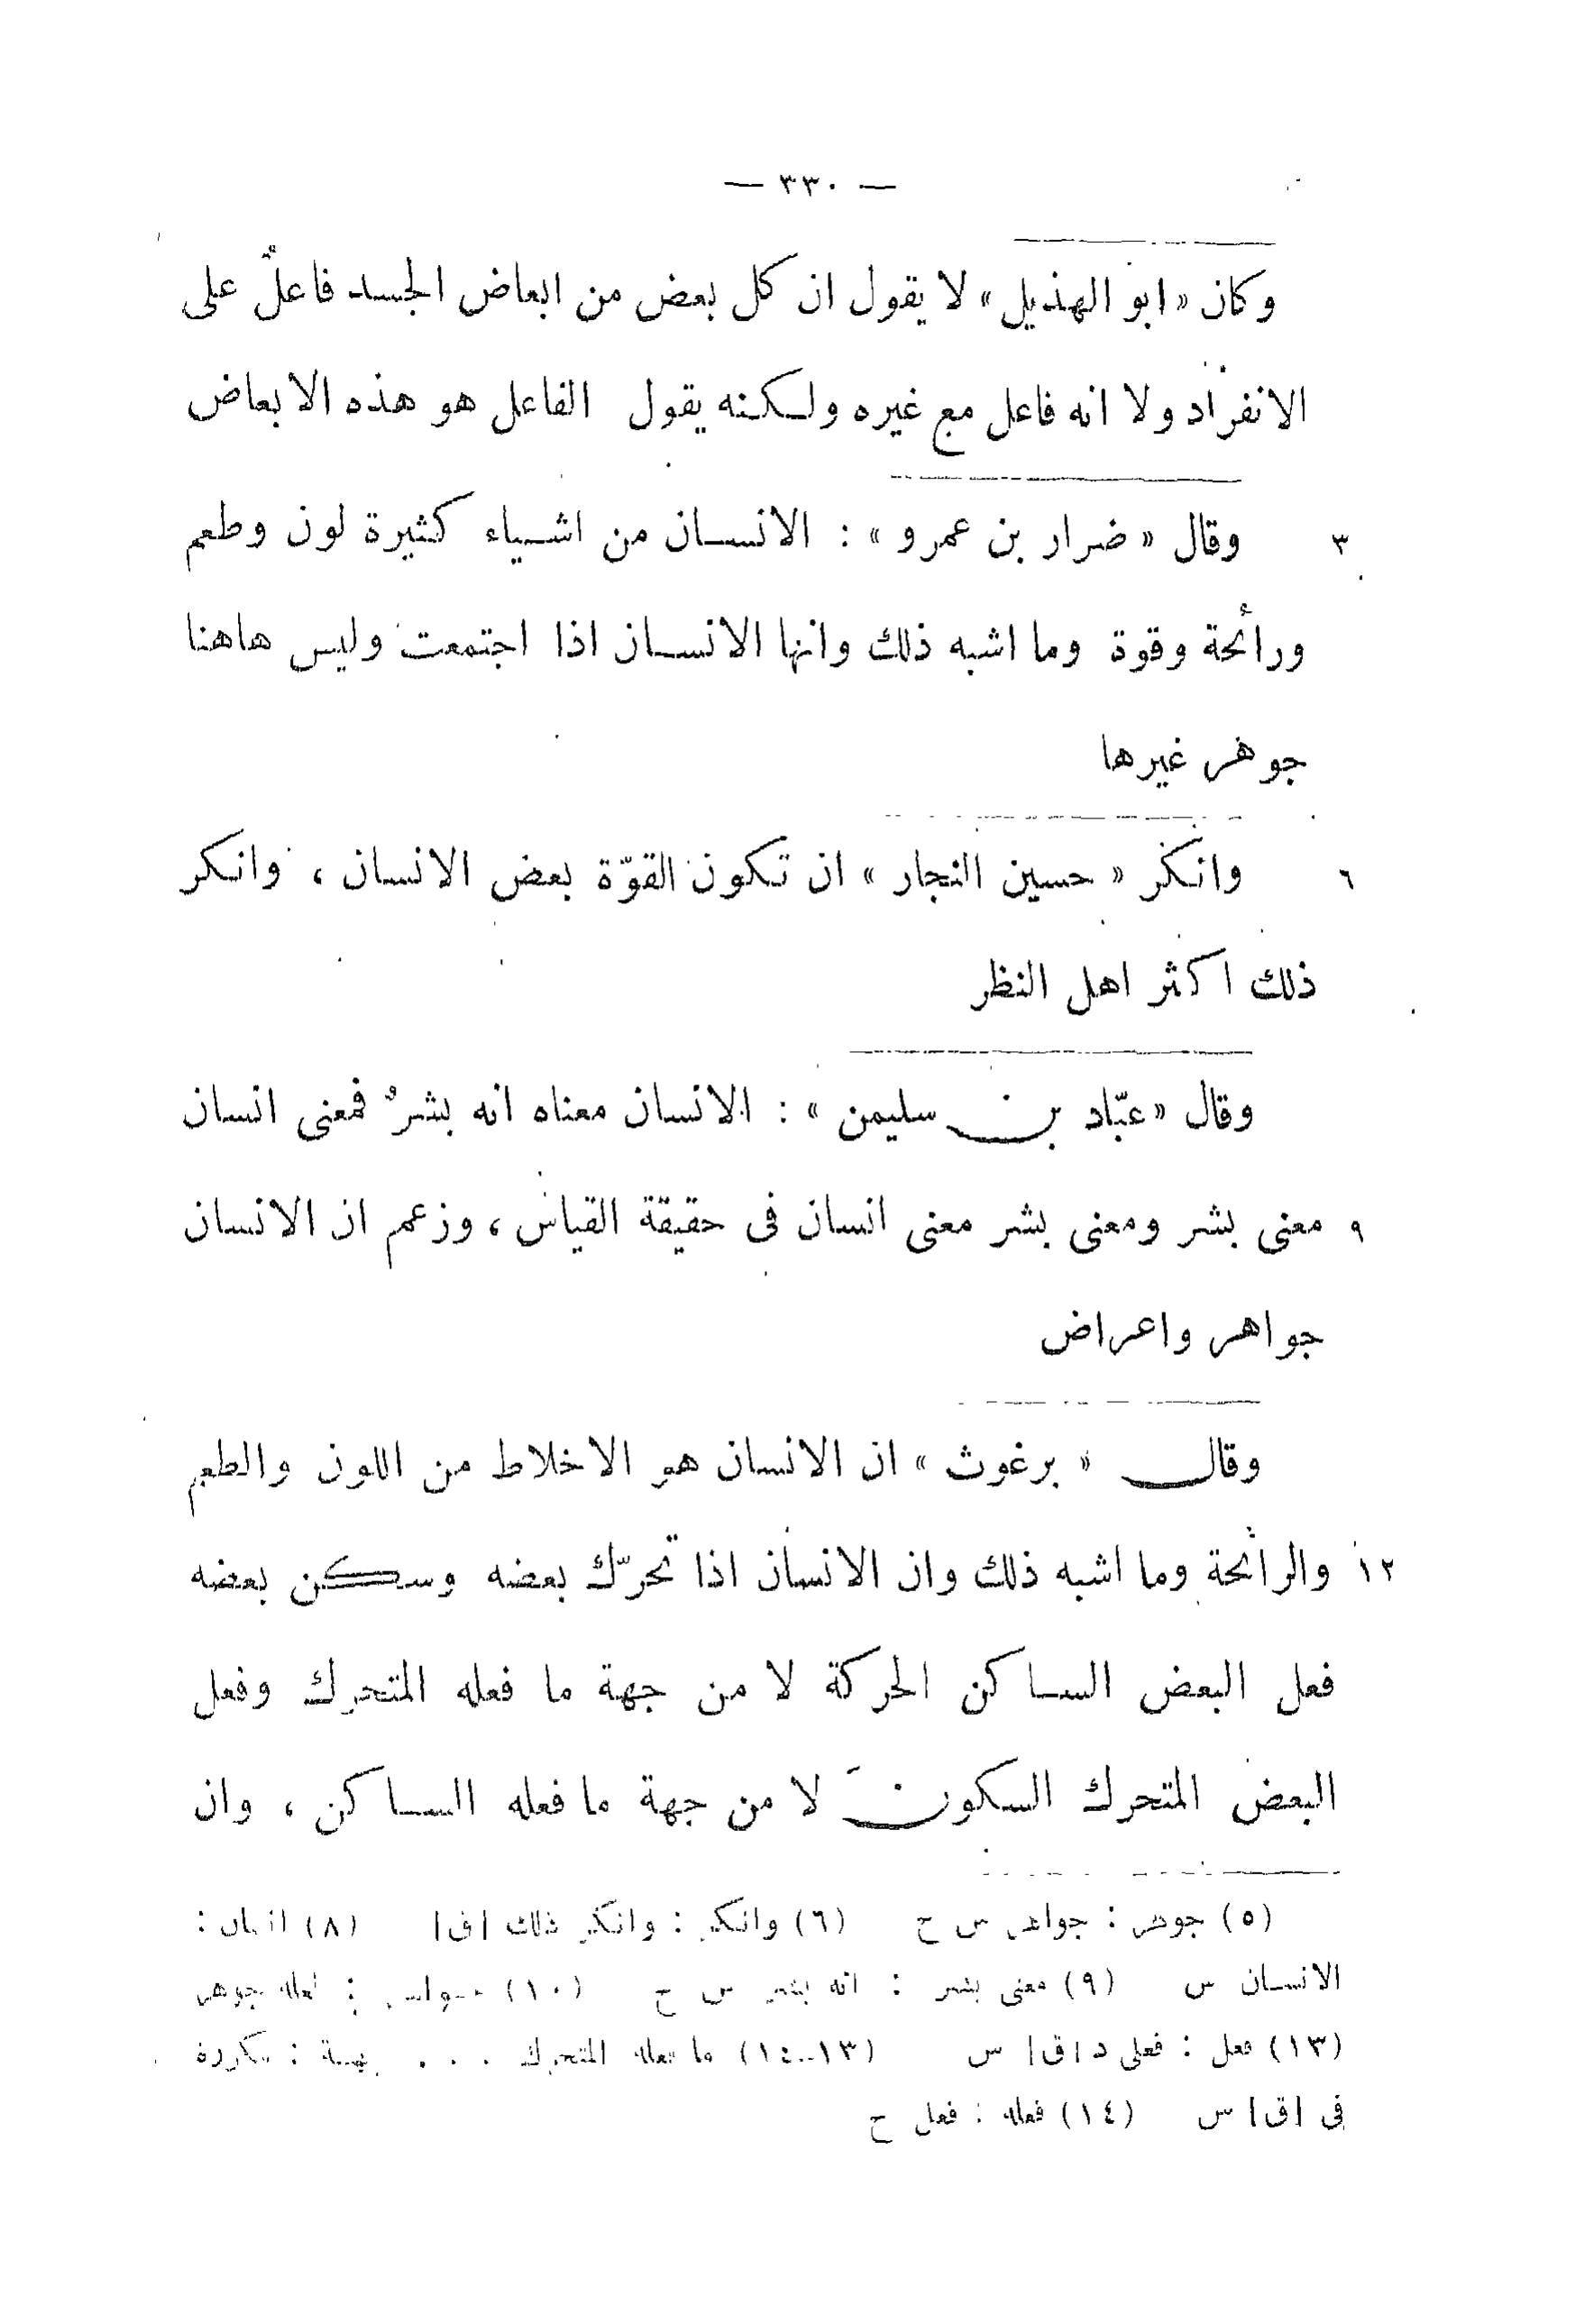 — ٣٣٠ —
وكان «ابو الهذيل» لا يقول ان كل بعض من ابعاض الجسد فاعلٌ على
الانفراد ولا انه فاعل مع غيره ولكنه يقول الفاعل هو هذه الابعاض
٣ وقال «ضرار بن عمرو» : الانسان من اشياء كثيرة لون وطعم
ورائحة وقوة وما اشبه ذلك وانها الانسان اذا اجتمعت وليس هاهنا
جوهر غيرها
٦ وانكر «حسين النجار» ان تكون القوّة بعض الانسان ، وانكر
ذلك اكثر اهل النظر
وقال «عبّاد بن سليمن» : الانسان معناه انه بشرٌ فمعنى انسان
٩ معنى بشر ومعنى بشر معنى انسان فى حقيقة القياس ، وزعم ان الانسان
جواهر واعراض
وقال «برغوث» ان الانسان هو الاخلاط من اللون والطعم
١٢ والرائحة وما اشبه ذلك وان الانسان اذا تحرّك بعضه وسكن بعضه
فعل البعض الساكن الحركة لا من جهة ما فعله المتحرك وفعل
البعض المتحرك السكونَ لا من جهة ما فعله الساكن ، وان
(٥) جوهر : جواهر س ح (٦) وانكر : وانكر ذلك |ق| (٨) انسان :
الانسان س (٩) معنى بشر : انه بشر س ح (١٠) جواهر : لعله جوهر
(١٣) فعل : فعلى د |ق| س (١٣-١٤) ما فعله المتحرك . . . جهة : مكررة
فى |ق| س (١٤) فعله : فعل ح